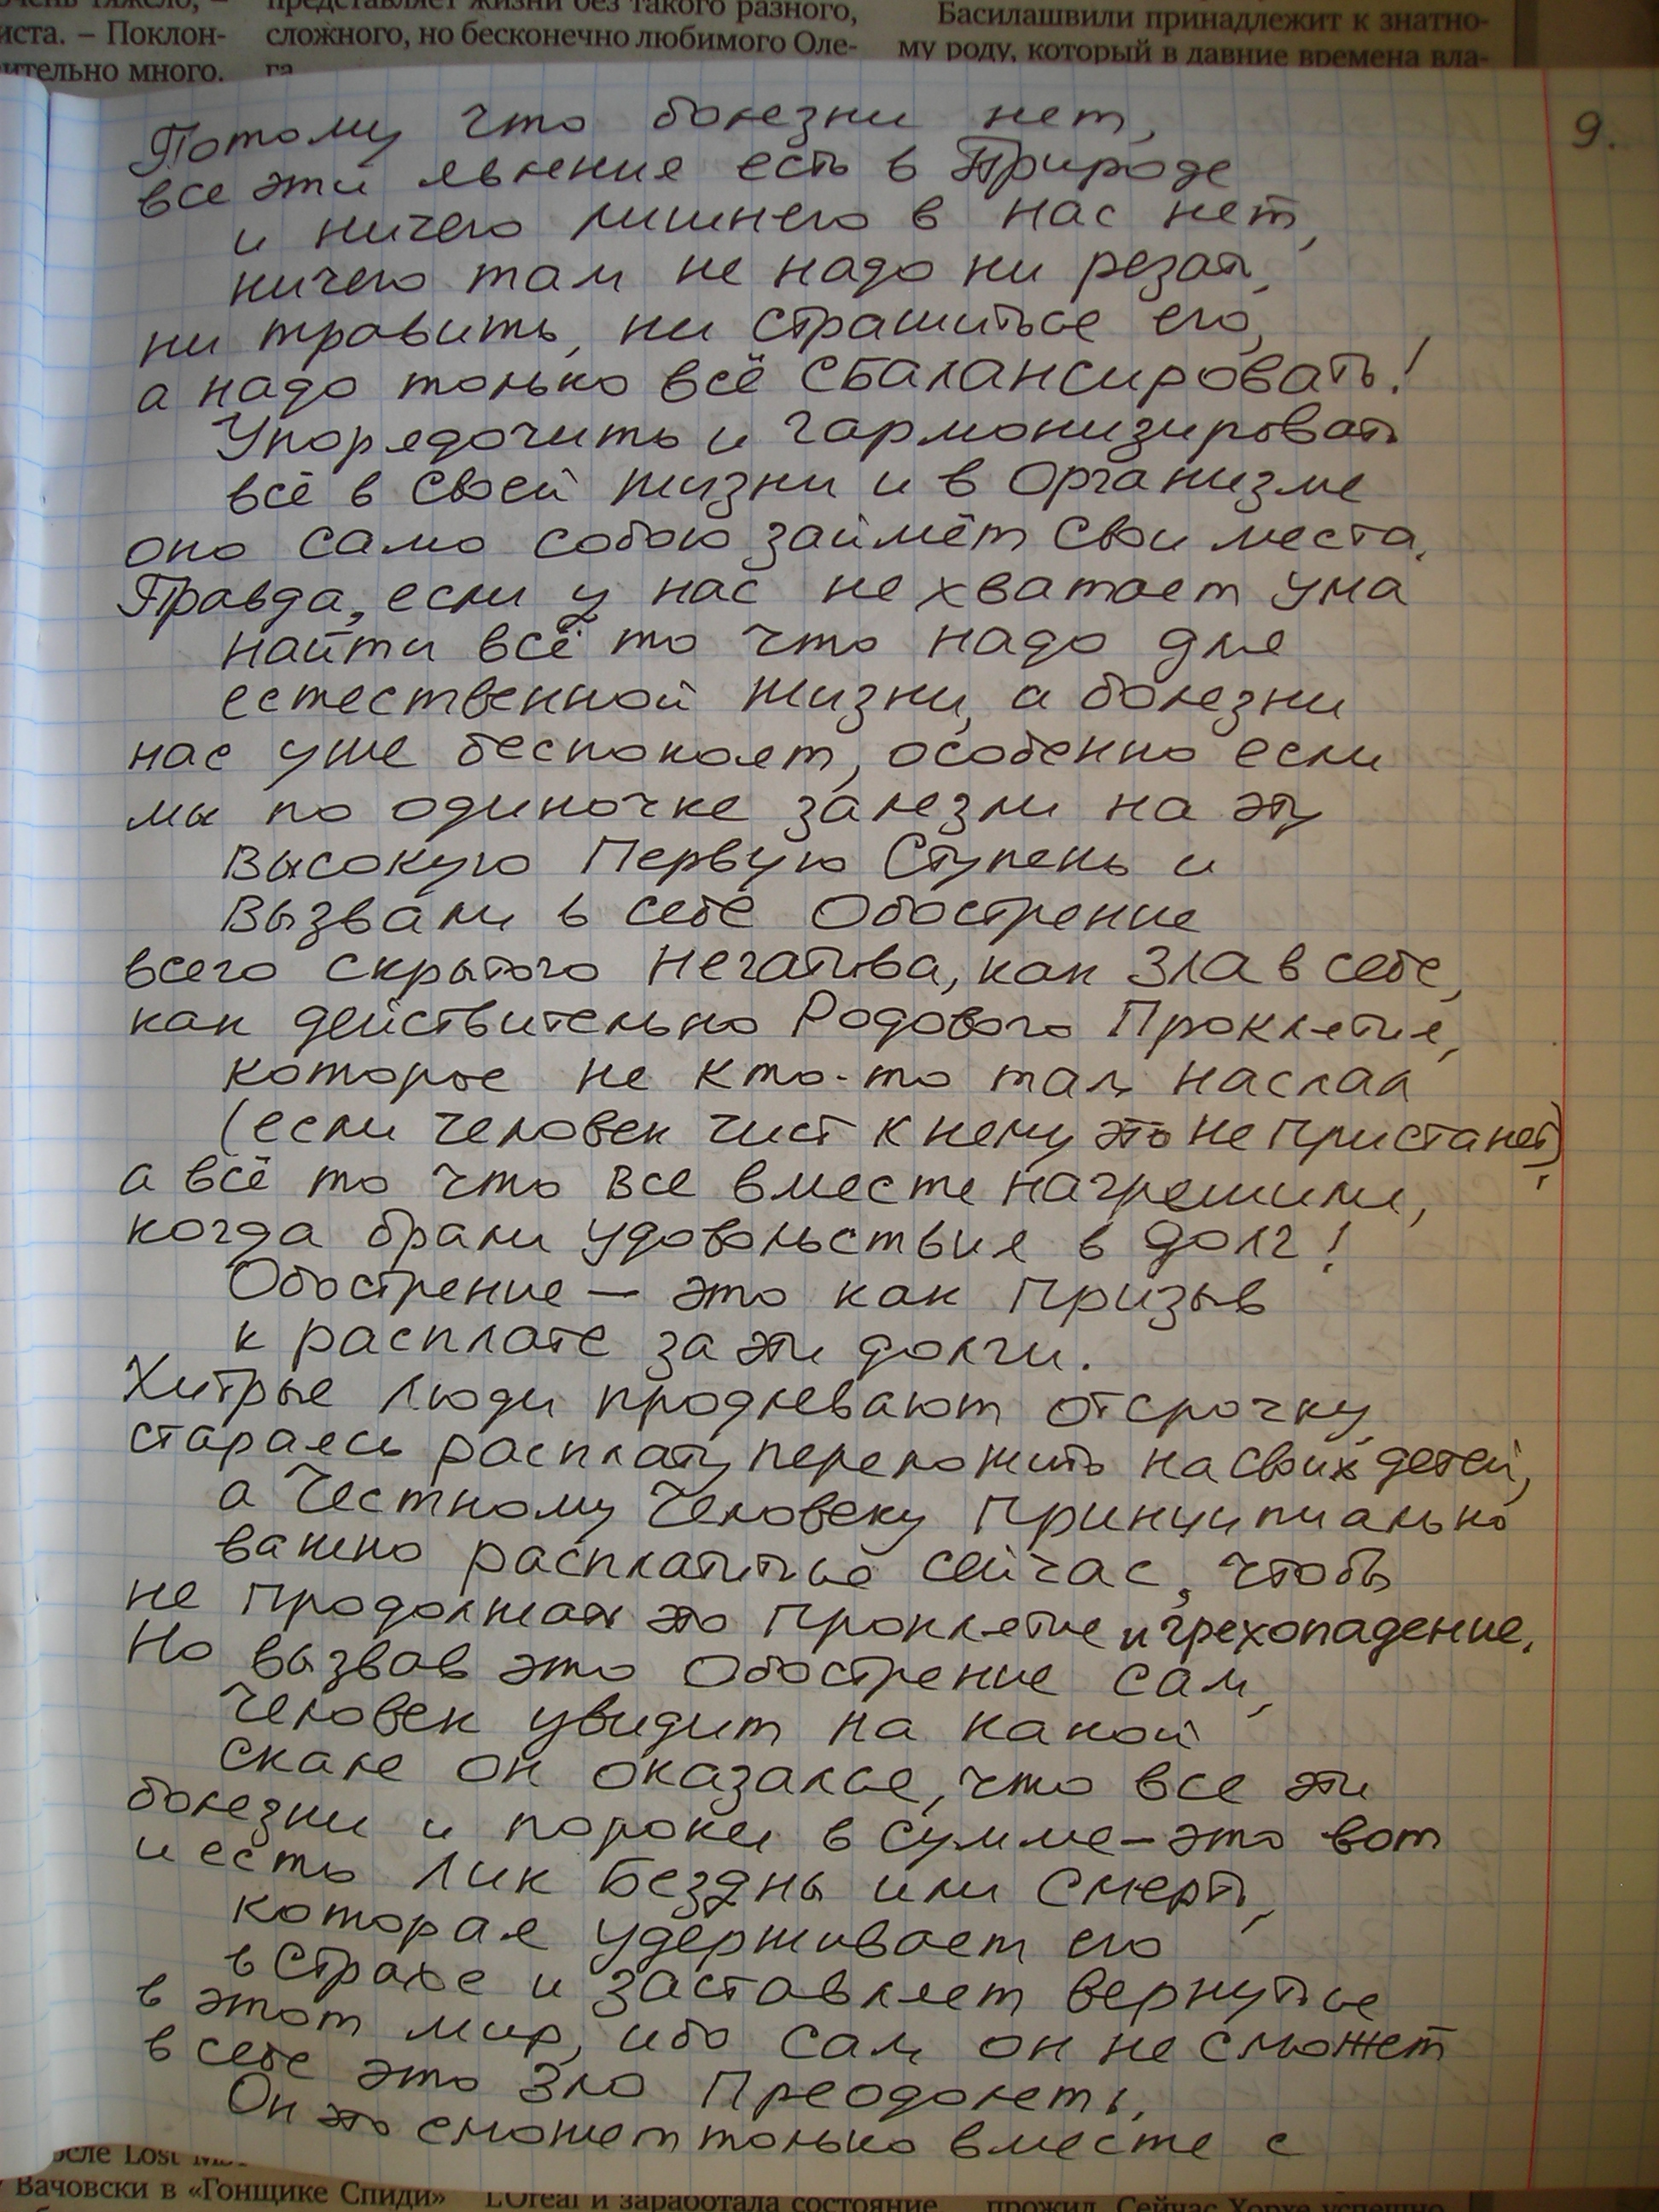 очень тяжело, –
иста. – Поклон-
ительно много.
представляет жизни без такого разного,
сложного, но бесконечно любимого Оле-
га
Басилашвили принадлежит к знатно-
му роду, который в давние времена вла-
9.
Потому что болезни нет,
все эти явления есть в Природе
и ничего лишнего в нас нет,
ничего там не надо ни резать,
ни травить, ни страшиться его,
а надо только всё сбалансировать!
Упорядочить и гармонизировать
всё в своей жизни и в Организме
оно само собою займёт свои места.
Правда, если у нас не хватает ума
найти всё то что надо для
естественной жизни, а болезни
нас уже беспокоят, особенно если
мы по одиночке залезли на эту
Высокую Первую Ступень и
Вызвали в себе Обострение
всего скрытого Негатива, как Зла в себе,
как действительно Родового Проклятия,
которые не кто-то там наслал
(если человек чист к нему это не пристанет),
а всё то что все вместе нагрешили,
когда брали удовольствия в долг!
Обострение – это как Призыв
к расплате за эти долги.
Хитрые люди продлевают отсрочку,
стараясь расплату переложить на своих детей,
а Честному Человеку Принципиально
важно расплатиться сейчас, чтобы
не продолжать это Проклятие и грехопадение.
Но вызвав это Обострение сам,
Человек увидит на какой
скале он оказался, что все эти
болезни и пороки в сумме – это вот
и есть Лик Бездны или Смерти,
которая удерживает его
в Страхе и заставляет вернуться
в этот мир, ибо сам он не сможет
в себе это Зло Преодолеть.
Он это сможет только вместе с
осле Lost
Вачовски в «Гонщике Спиди»
L'Oreal и заработала состояние
прожил. Сейчас Хорхе успешно